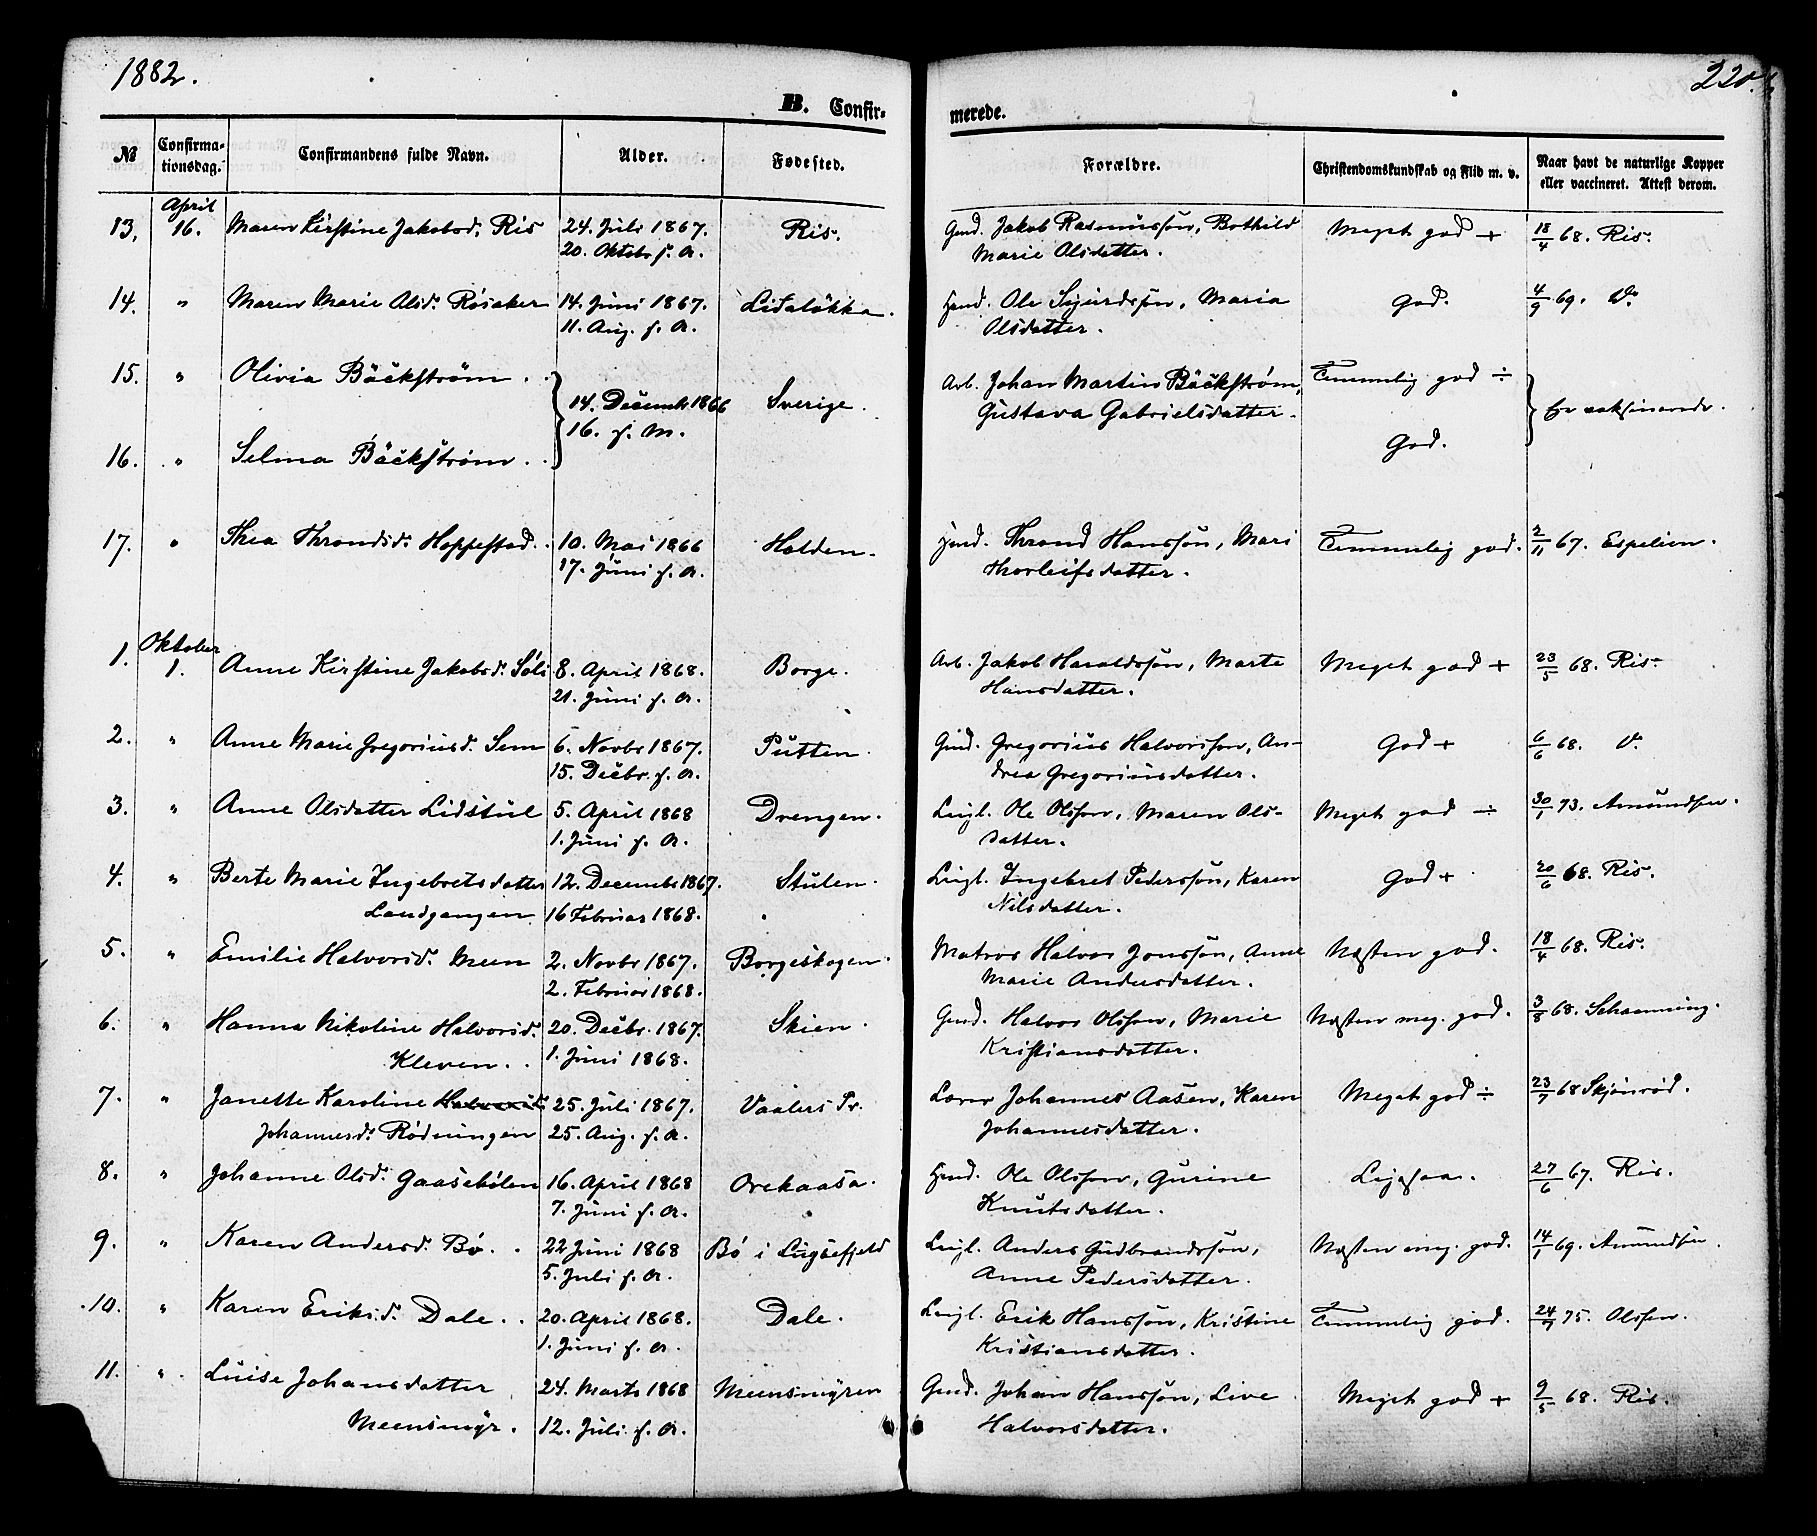 1882.
220.
B. Confir-
merede.
№ Confirma-tionsdag. Confirmandens fulde Navn. Alder. Fødested. Forældre. Christendomskundskab og Flid m. v. Naar havt de naturlige Kopper eller vaccineret. Attest derom.
April
13. 16. Maren Kirstine Jakobsd. Ris 24. Juli 1867. Ris. Gmd. Jakob Rasmussøn, Bothild Meget god + 18/4 68. Ris.
20. Oktob. s. A. Marie Olsdatter.
14. " Maren Marie Olsd. Røsaker 14. Juni 1867. Lidaløkka. Ole Sjurdsøn, Maria God. 4/9 69. D.
11. Aug. s. A. Olsdatter.
15. " Olivia Bäckström. Arb. Johan Martin Bäckström, Temmelig god ÷
14. Decembr 1866 Sverige. Gustava Gabrielsdatter. Er vaksinerede.
16. s. M.
16. " Selma Bäckström. God.
17. " Thea Throndsd. Hoppestad. 10. Mai 1866 Holden. Thrond Hanssøn, Mari Temmelig god. 2/11 67. Espelien.
17. Juni s. A. Thorleifsdatter.
Oktober
1. 1. Anne Kirstine Jakobsd. Søli 8. April 1868. Borge. Arb. Jakob Haraldssøn, Marte Meget god + 23/5 68. Ris.
21. Juni s. A. Hansdatter.
2. " Anne Marie Gregoriusd. Sem 6. Novbr 1867. Putten. Gmd. Gregorius Halvorssøn, An- God + 6/6 68. D.
15. Decbr. s. A. drea Gregoriusdatter.
3. " Anne Olsdatter Lidstul 5. April 1868 Drengen. Leigl. Ole Olssøn, Maren Ols- Meget god ÷ 30/1 73. Amundsen.
1. Juni s. A. datter.
4. " Berte Marie Ingebretsdatter 12. Decembr 1867. Stulen. Leigl. Ingebret Pederssøn, Karen God + 20/6 68. Ris.
Landgangen 16 Februar 1868. Nilsdatter.
5. " Emilie Halvorsd. Meen 2. Novbr 1867. Borgeskogen. Matros Halvor Jonssøn, Anne Næsten god. 18/4 68. Ris.
2. Februar 1868. Marie Andersdatter.
6. " Hanna Nikoline Halvorsd. 20. Decbr. 1867. Skien. Gmd. Halvor Olssøn, Marie Næsten meg. god. 3/8 68. Schanning.
Kleven. 1. Juni 1868. Kristiansdatter.
7. " Janette Karoline Halvorsd. 25. Juli 1867. Vaalers Pr. Lærer Johannes Aasen, Karen Meget god ÷ 23/7 68 Skjønrød.
Johannesd. Rødningen 25. Aug. s. A. Johannesdatter.
8. " Johanne Olsd. Gaasehølen 16. April 1868 Orekaasa. Ole Olssøn, Gurine 27/6 67. Ris.
7. Juni s. A. Knutsdatter.
9. " Karen Andersd. Bø. 22 Juni 1868 Bø i Luksefjeld Leigl. Anders Gudbrandssøn, Næsten meg. god. 14/1 69. Amundsen.
5. Juli s. A. Anne Pedersdatter.
10. " Karen Eriksd. Dale. 20. April 1868. Dale. Leigl. Erik Hanssøn, Kristine Temmelig god. 24/7 75. Olsen.
1. Juni s. A. Kristiansdatter.
11. " Luise Johansdatter 24. Marts 1868 Meensmyren Gmd. Johan Hanssøn, Live Meget god + 9/5 68. Ris.
Meensmyr. 12. Juli s. A. Halvorsdatter.